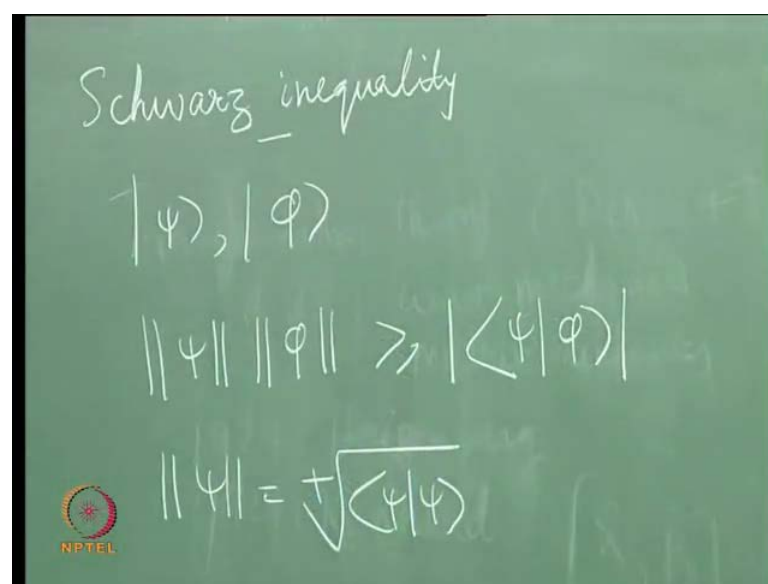 Schwarz inequality
|ψ⟩, |φ⟩
||ψ|| ||φ|| ⩾ |⟨ψ|φ⟩|
||ψ|| = +√⟨ψ|ψ⟩
NPTEL